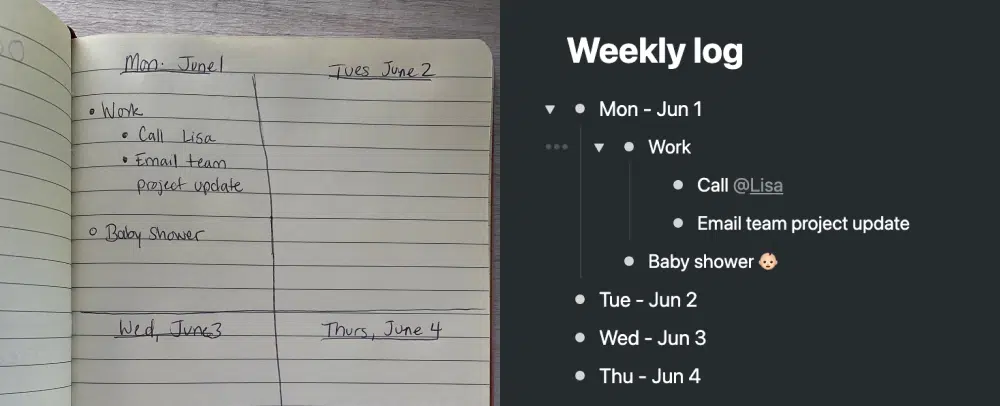 Mon. June 1
Tues June 2
• Work
• Call Lisa
• Email team
project update
○ Baby shower
Wed, June 3
Thurs, June 4
Weekly log
Mon - Jun 1
Work
Call @Lisa
Email team project update
Baby shower 👶🏻
Tue - Jun 2
Wed - Jun 3
Thu - Jun 4